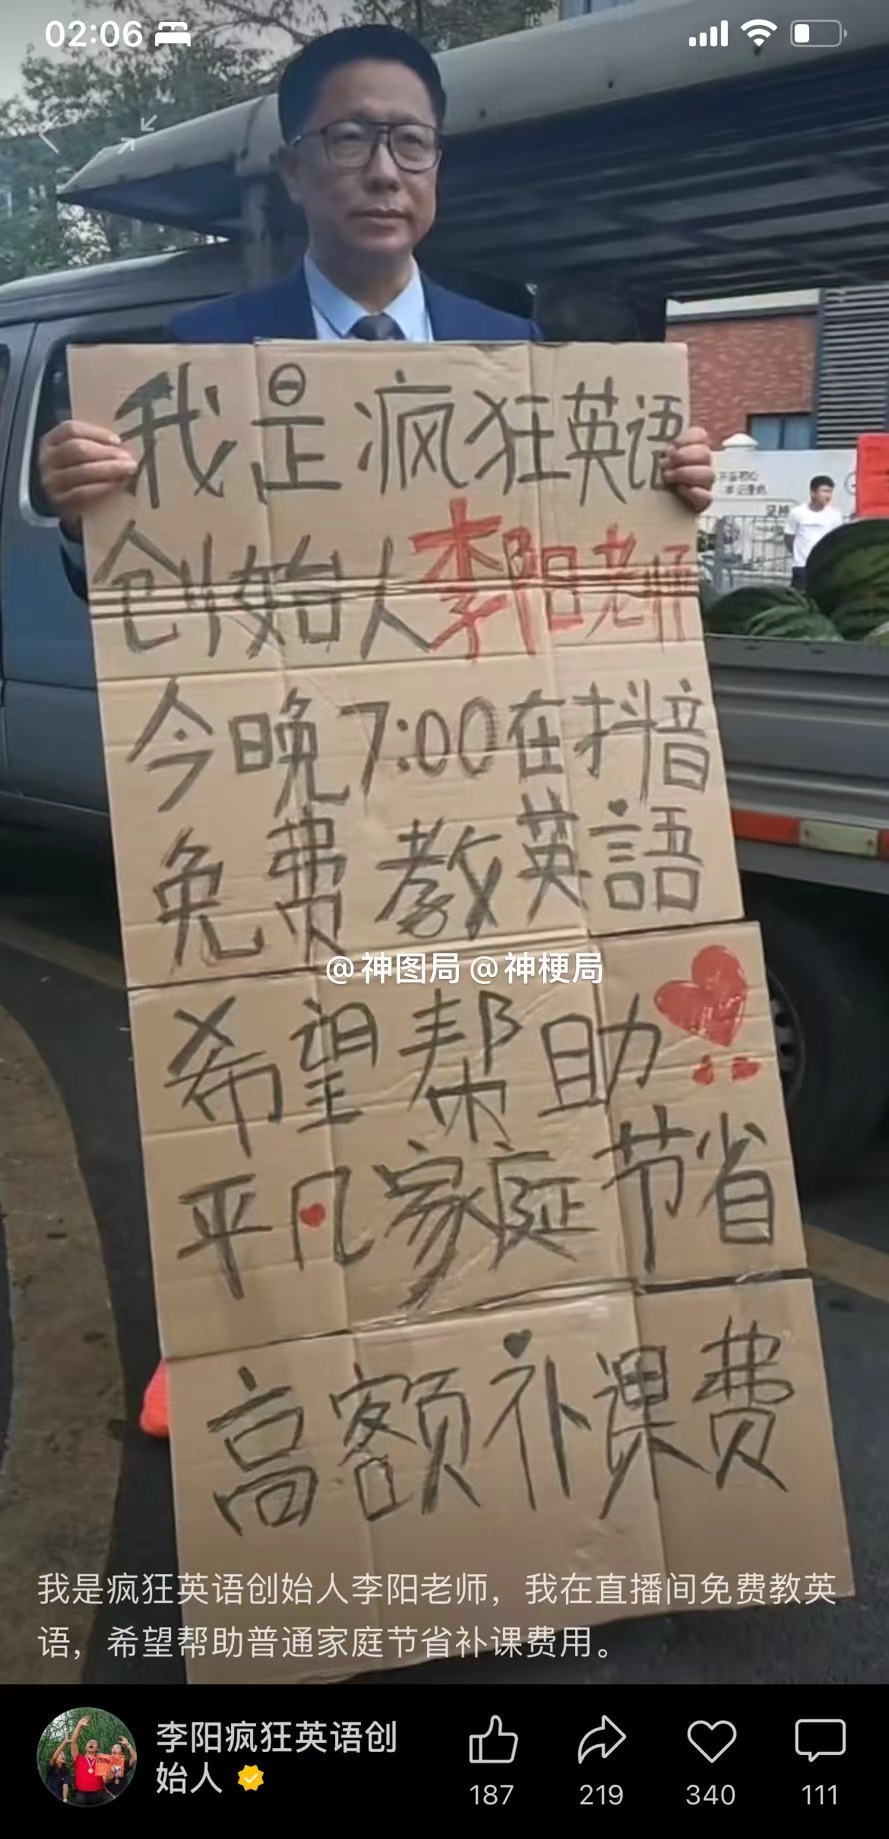 02:06
我是疯狂英语
创始人李阳老师
今晚7:00在抖音
免费教英語
@神图局 @神梗局
希望帮助
平凡家庭节省
高额补课费
我是疯狂英语创始人李阳老师，我在直播间免费教英
语，希望帮助普通家庭节省补课费用。
李阳疯狂英语创
始人
187
219
340
111